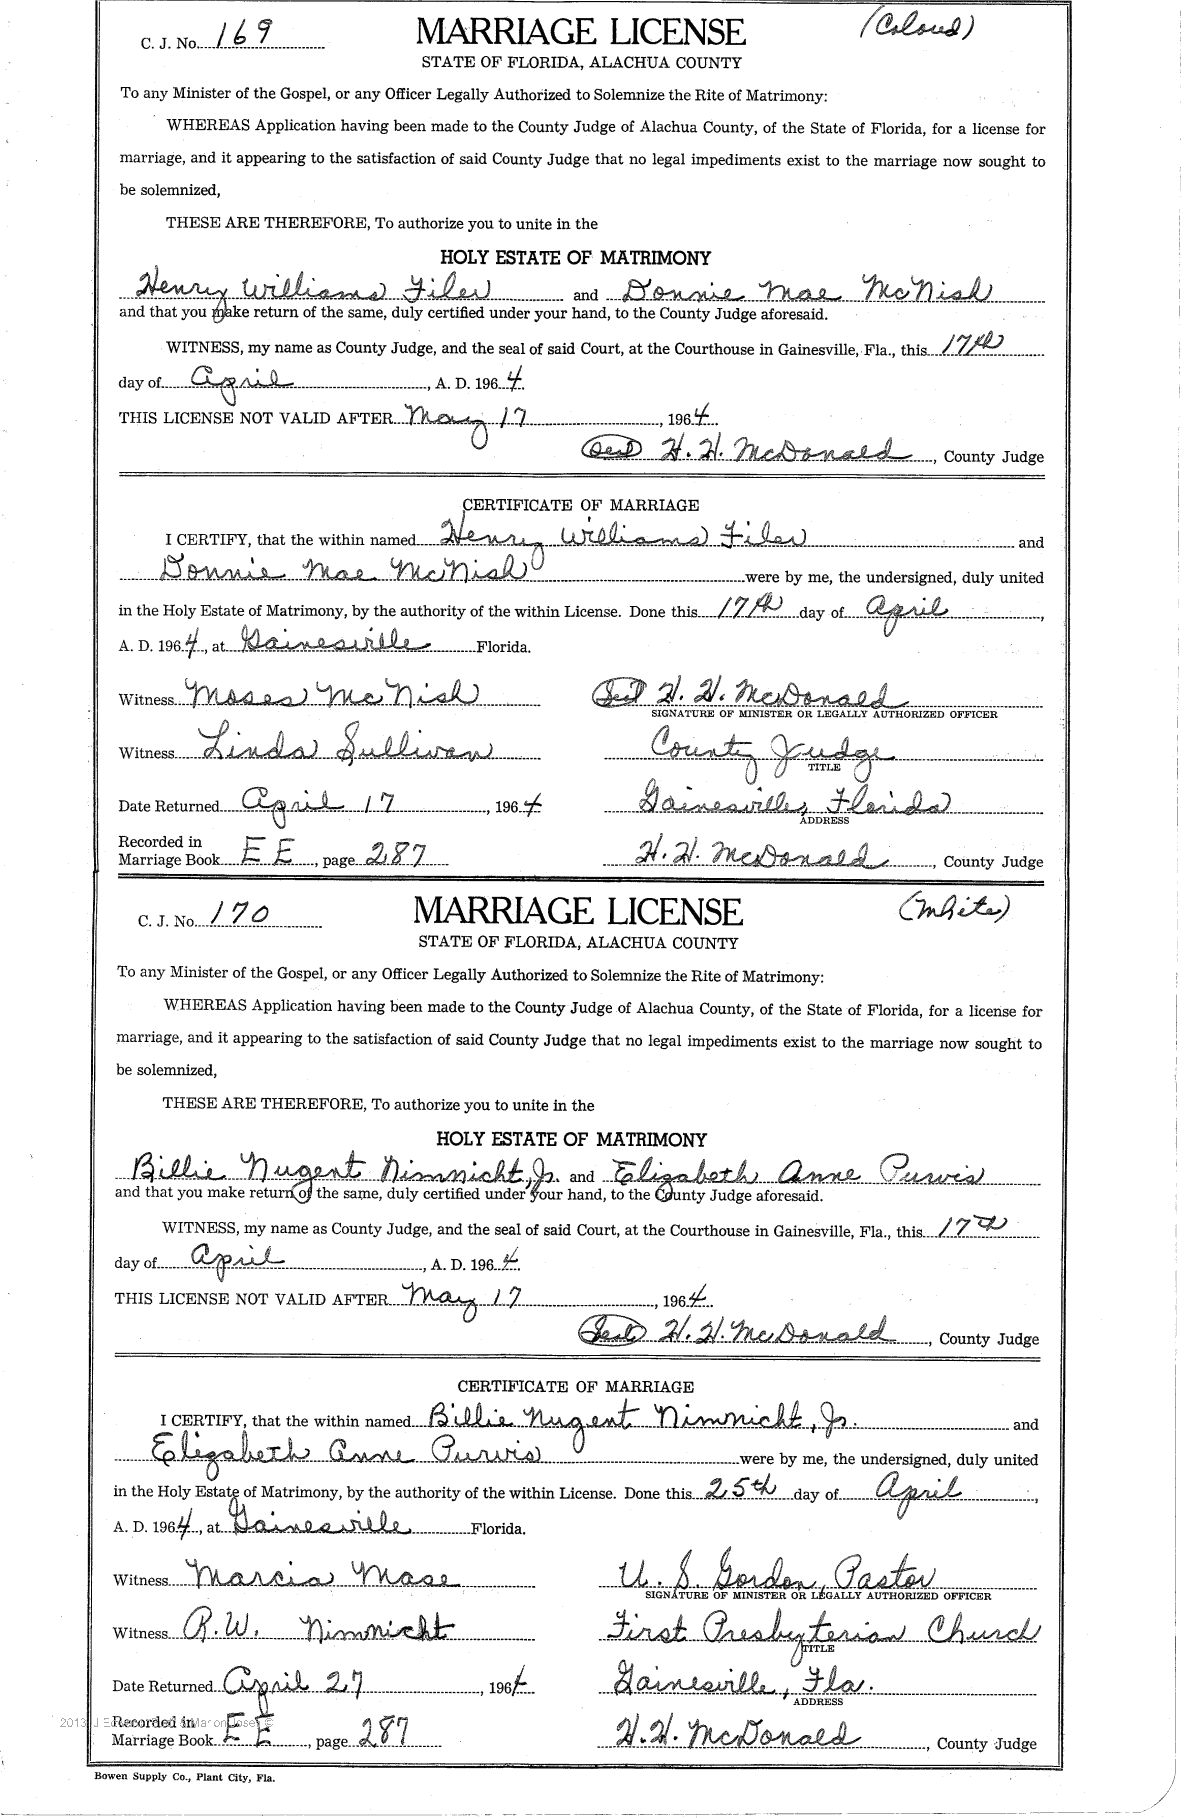 C. J. No. 169 MARRIAGE LICENSE (Colored)
STATE OF FLORIDA, ALACHUA COUNTY
To any Minister of the Gospel, or any Officer Legally Authorized to Solemnize the Rite of Matrimony:
WHEREAS Application having been made to the County Judge of Alachua County, of the State of Florida, for a license for
marriage, and it appearing to the satisfaction of said County Judge that no legal impediments exist to the marriage now sought to
be solemnized,
THESE ARE THEREFORE, To authorize you to unite in the
HOLY ESTATE OF MATRIMONY
Henry Williams Filer and Donnie Mae McNish
and that you make return of the same, duly certified under your hand, to the County Judge aforesaid.
WITNESS, my name as County Judge, and the seal of said Court, at the Courthouse in Gainesville, Fla., this 17th
day of April, A. D. 1964.
THIS LICENSE NOT VALID AFTER May 17, 1964.
(Seal) H. H. McDonald, County Judge
CERTIFICATE OF MARRIAGE
I CERTIFY, that the within named Henry Williams Filer and
Donnie Mae McNish were by me, the undersigned, duly united
in the Holy Estate of Matrimony, by the authority of the within License. Done this 17th day of April,
A. D. 1964, at Gainesville Florida.
Witness Moses McNish (Seal) H. H. McDonald
SIGNATURE OF MINISTER OR LEGALLY AUTHORIZED OFFICER
Witness Linda Sullivan County Judge
TITLE
Date Returned April 17, 1964 Gainesville, Florida
ADDRESS
Recorded in
Marriage Book EE, page 287 H. H. McDonald, County Judge
C. J. No. 170 MARRIAGE LICENSE (White)
STATE OF FLORIDA, ALACHUA COUNTY
To any Minister of the Gospel, or any Officer Legally Authorized to Solemnize the Rite of Matrimony:
WHEREAS Application having been made to the County Judge of Alachua County, of the State of Florida, for a license for
marriage, and it appearing to the satisfaction of said County Judge that no legal impediments exist to the marriage now sought to
be solemnized,
THESE ARE THEREFORE, To authorize you to unite in the
HOLY ESTATE OF MATRIMONY
Billie Nugent Nimnicht, Jr. and Elizabeth Anne Purvis
and that you make return of the same, duly certified under your hand, to the County Judge aforesaid.
WITNESS, my name as County Judge, and the seal of said Court, at the Courthouse in Gainesville, Fla., this 17th
day of April, A. D. 1964.
THIS LICENSE NOT VALID AFTER May 17, 1964.
(Seal) H. H. McDonald, County Judge
CERTIFICATE OF MARRIAGE
I CERTIFY, that the within named Billie Nugent Nimnicht, Jr. and
Elizabeth Anne Purvis were by me, the undersigned, duly united
in the Holy Estate of Matrimony, by the authority of the within License. Done this 25th day of April,
A. D. 1964, at Gainesville Florida.
Witness Marcia Mase U. S. Gordon, Pastor
SIGNATURE OF MINISTER OR LEGALLY AUTHORIZED OFFICER
Witness R. W. Nimnicht First Presbyterian Church
TITLE
Date Returned April 27, 1964 Gainesville, Fla.
ADDRESS
Recorded in
Marriage Book EE, page 287 H. H. McDonald, County Judge
Bowen Supply Co., Plant City, Fla.